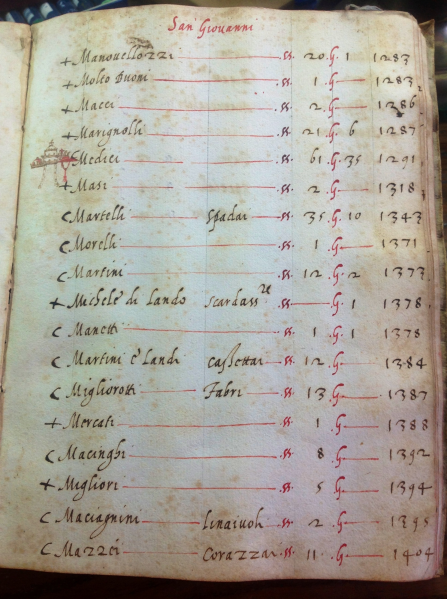 San Giovanni
+ Manovellozzi .SS. 20 .G. 1 1283
+ Molto Buoni .SS. 1 .G. 1283
+ Macci .SS. 2 .G. 1286
+ Marignolli .SS. 21 .G. 6 1287
Medici .SS. 61 .G. 35 1291
+ Masi .SS. 2 .G. 1318
C Martelli Spadai .SS. 35 .G. 10 1343
C Morelli .SS. 1 .G. 1371
C Martini .SS. 12 .G. 2 1373
+ Michele di Lando Scardassre .SS. .G. 1 1378
C Manetti .SS. 1 .G. 1 1378
C Martini e Landi Cassettai .SS. 12 .G. 1384
C Migliorotti Fabri .SS. 13 .G. 1387
+ Mercati .SS. 1 .G. 1388
C Macinghi .SS. 8 .G. 1392
+ Migliori .SS. 5 .G. 1394
C Maciagnini linaivoli .SS. 2 .G. 1395
C Mazzei Corazzai .SS. 11 .G. 1404